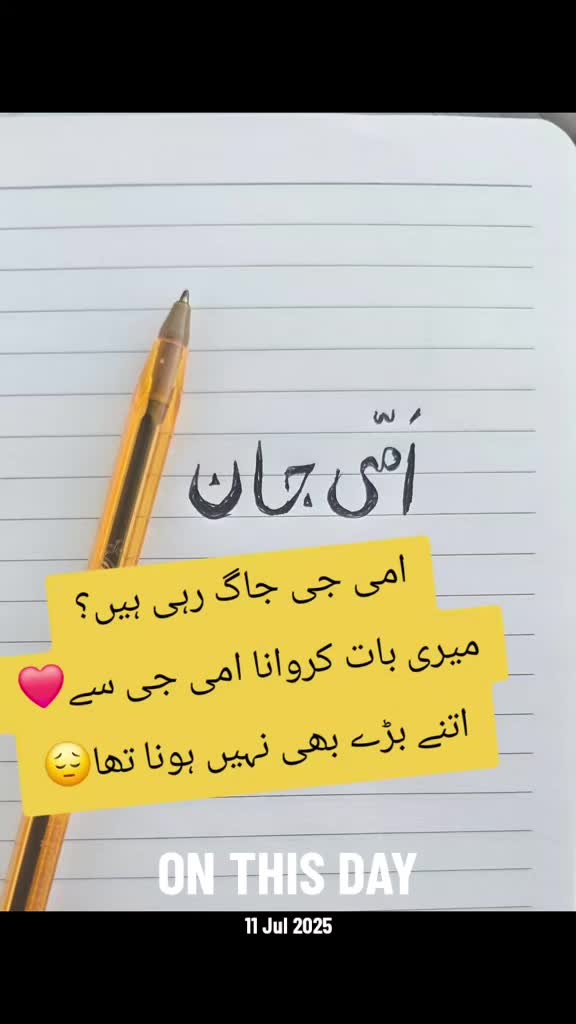 اَمّی جان
امی جی جاگ رہی ہیں؟
میری بات کروانا امی جی سے❤️
اتنے بڑے بھی نہیں ہونا تھا😔
ON THIS DAY
11 Jul 2025